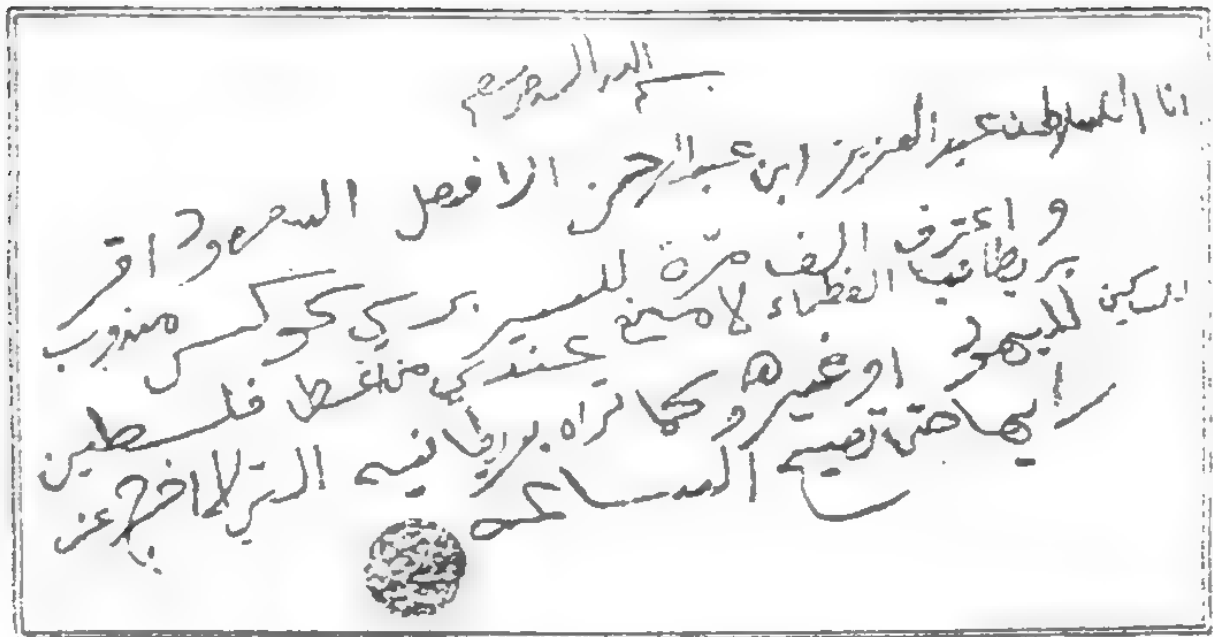 بسم الله الرحمن الرحيم
انا السلطان عبد العزيز ابن عبد الرحمن الافصل السعود اقر
و اعترف الف مرّة للسير برسي كوكس مندوب
بريطانيا العظماء لا مانع عندي من اعطا فلسطين
للمساكين لليهود او غيرهم وكما تراه بريطانيه التي لا اخرج عن
رايها حتى تصيح الساعه